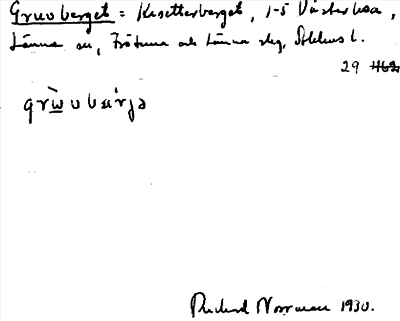 Gruvberget = Kasetterberget, 1-5 Västerlisa,
Länna sn, Frötuna och Länna slg, Sthlms l.
29 462
grẁvbærjə
Rickard Norrman 1930.